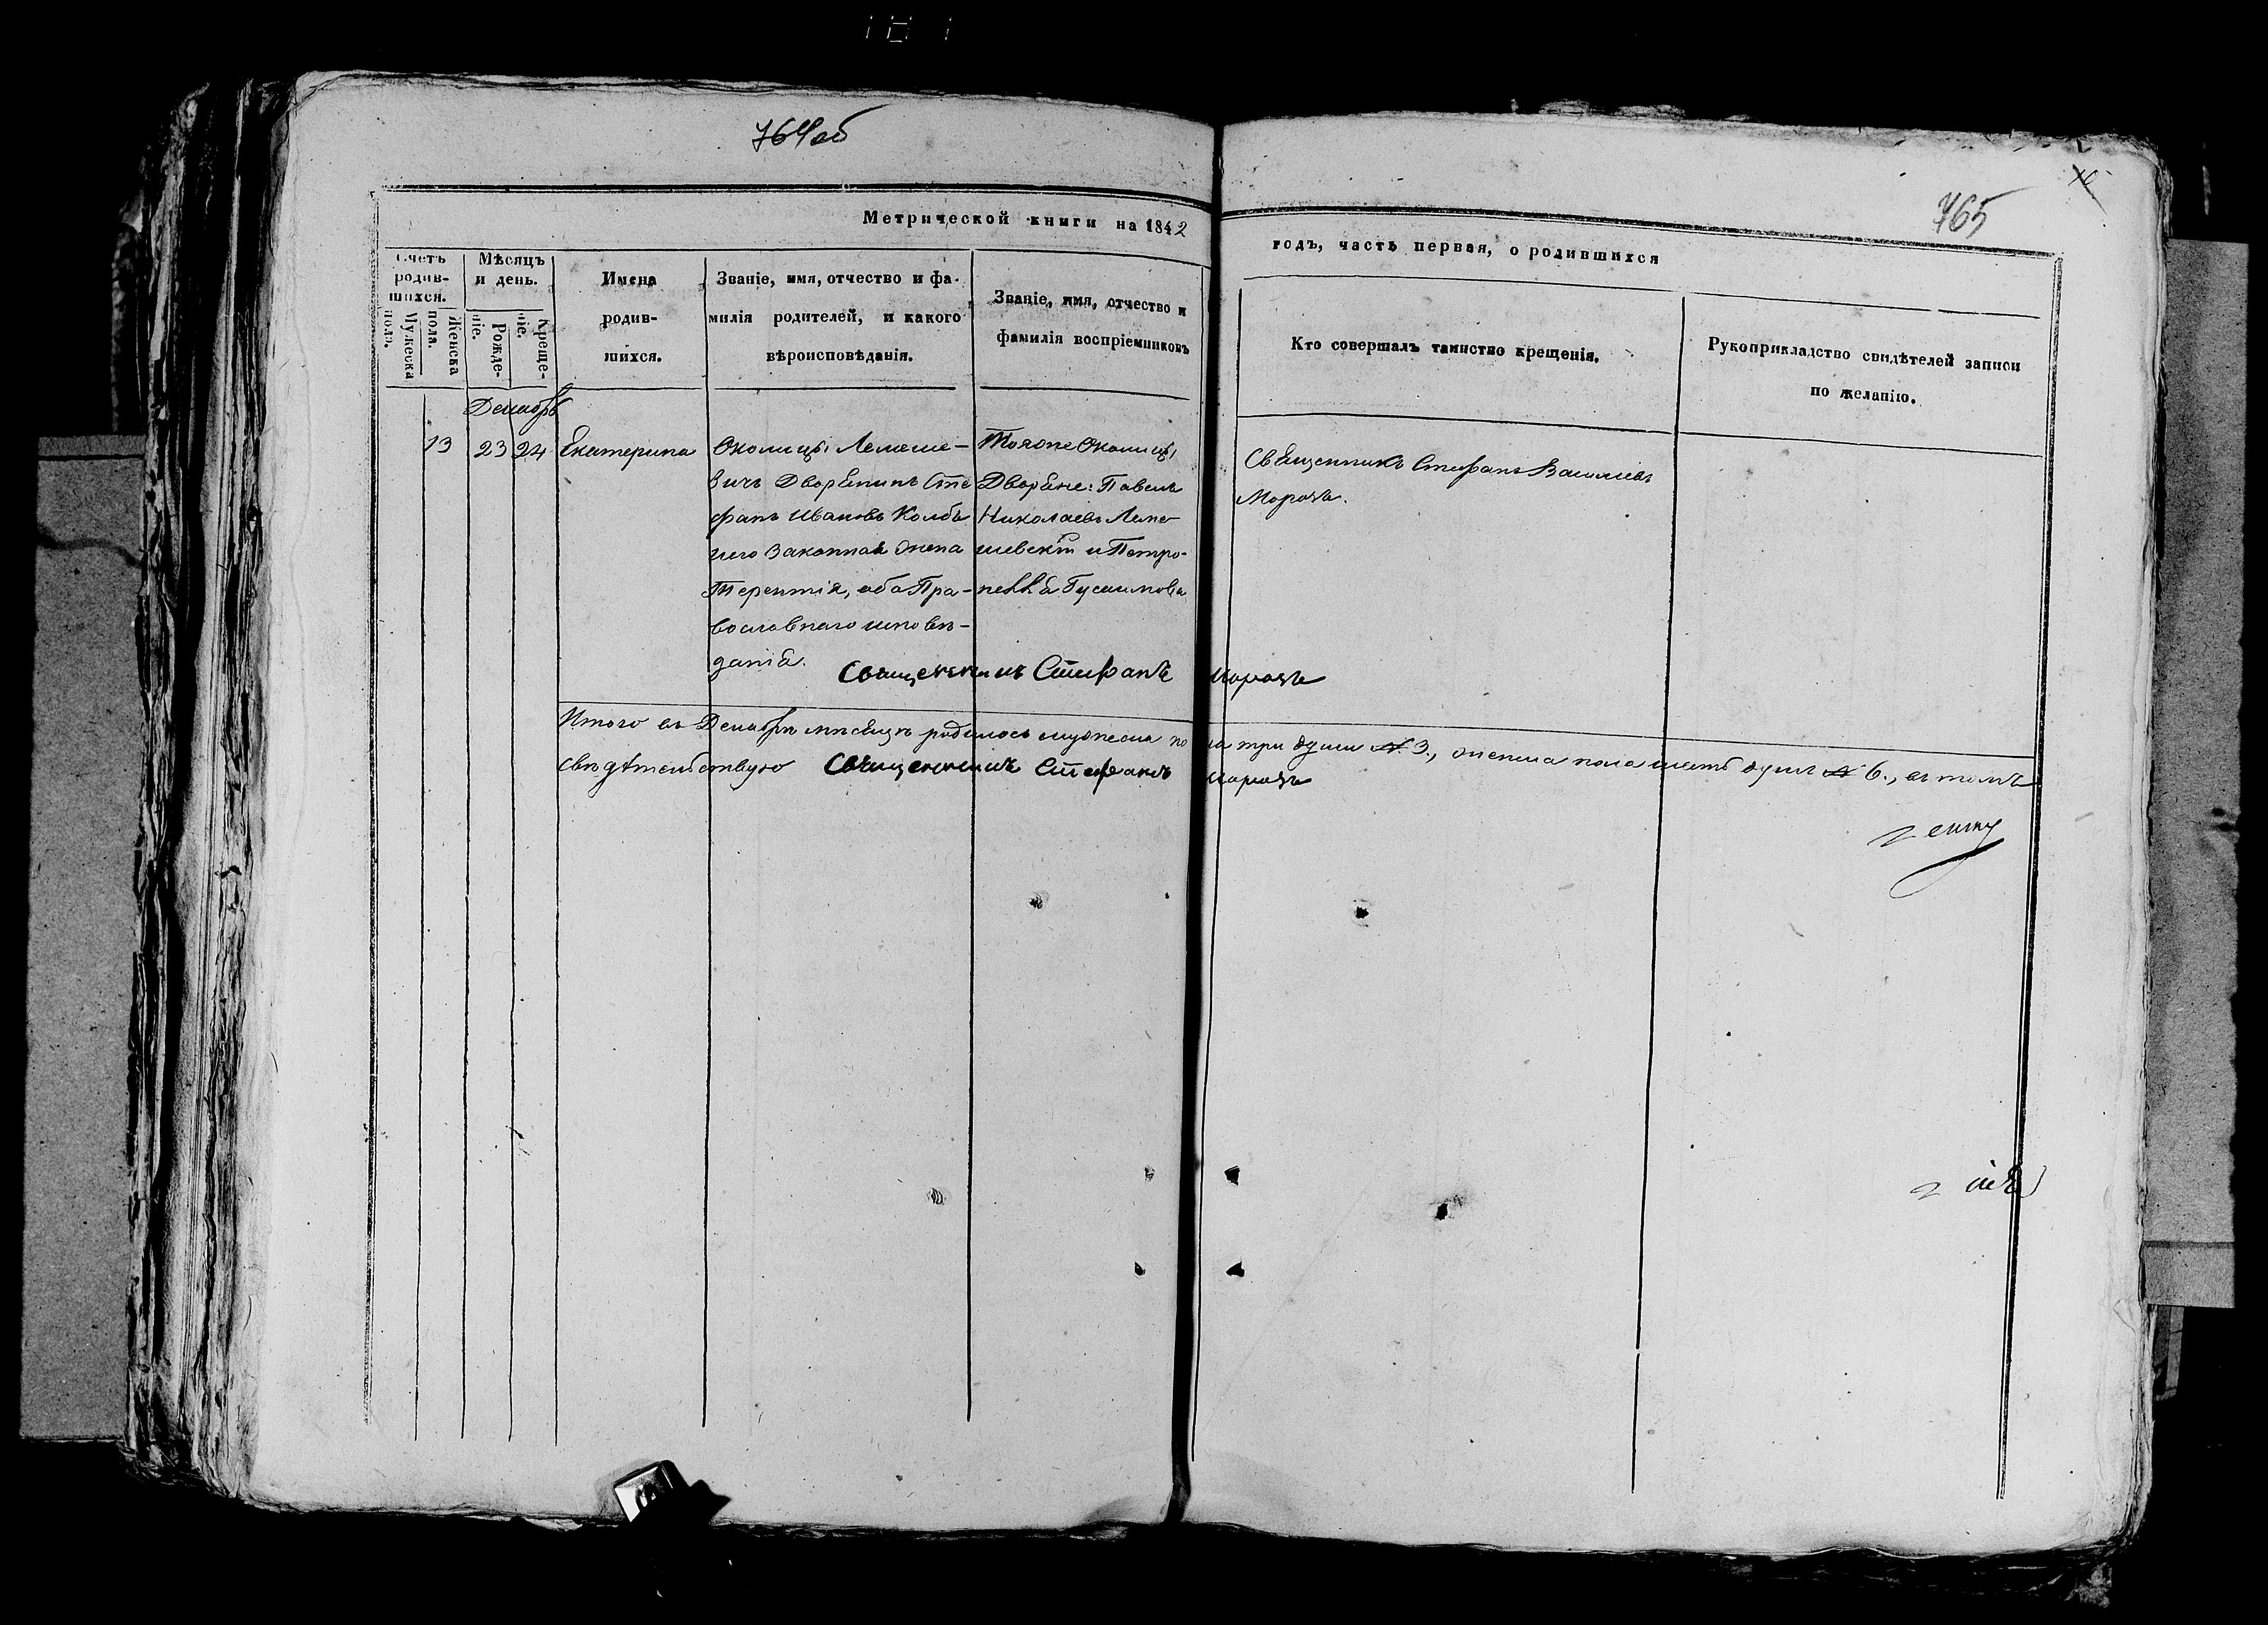 764об
765
Метрической книги на 1842
годъ, часть первая, о родившихся
Счетъ родив-шихся.
Мужеска пола.
Женска пола.
Мѣсяцъ и день.
Рожде-ніе.
Креще-ніе.
Имена
родив-
шихся.
Званіе, имя, отчество и фа-
милія родителей, и какого
вѣроисповѣданія.
Званіе, имя, отчество и
фамилія воспріемниковъ
Кто совершалъ таинство крещенія.
Рукоприкладство свидѣтелей записи
по желанію.
Декабрь
13 23 24 Екатерина
Околицы Лемеше-
вичъ Дворянинъ Сте
фанъ Ивановъ Колбъ
его Законная жена
Терентія, оба Пра-
вославнаго исповѣ-
данія.
Тояже Околицы
Дворяне: Павелъ
Николаевъ Леме-
шевскій и Петро-
нелля
Священникъ Стефанъ Васильевъ
Морозъ.
Священникъ Стефанъ Морозъ
Итого въ Декабрѣ мѣсяцѣ родилось мужеска пола три души № 3., женска пола шесть душъ № 6., въ томъ
свидѣтельствую Священникъ Стефанъ Морозъ